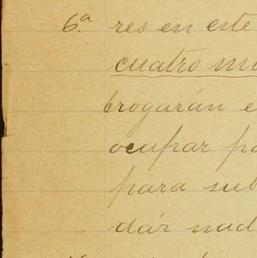 6.ª res en este
cuatro me
brogarán e
ocupar po
para sub
dár nad